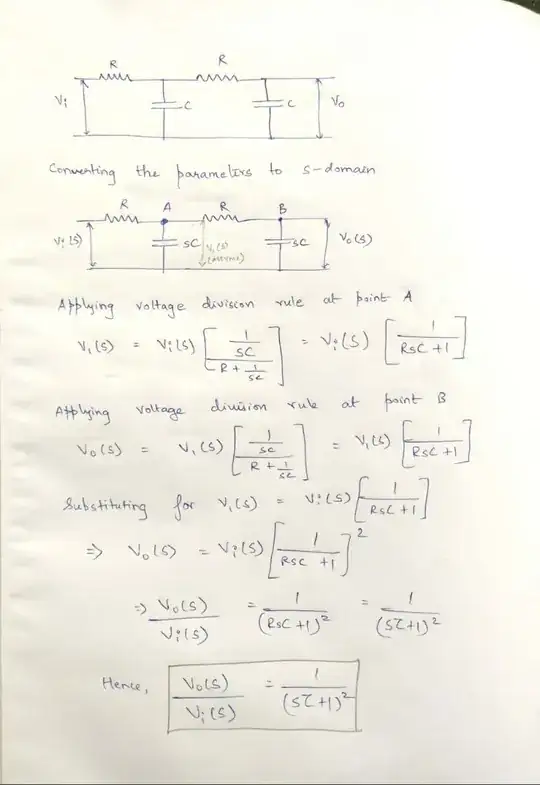 R R
Vi C C Vo
Converting the parameters to s-domain
R A R B
Vi(s) sC V₁(s) (assume) sC Vo(s)
Applying voltage division rule at point A
V₁(s) = Vi(s) [ (1/sC) / (R + 1/sC) ] = Vi(s) [ 1 / (RsC + 1) ]
Applying voltage division rule at point B
Vo(s) = V₁(s) [ (1/sC) / (R + 1/sC) ] = V₁(s) [ 1 / (RsC + 1) ]
Substituting for V₁(s) = Vi(s) [ 1 / (RsC + 1) ]
⇒ Vo(s) = Vi(s) [ 1 / (RsC + 1) ]²
⇒ Vo(s) / Vi(s) = 1 / (RsC + 1)² = 1 / (sτ + 1)²
Hence, Vo(s) / Vi(s) = 1 / (sτ + 1)²